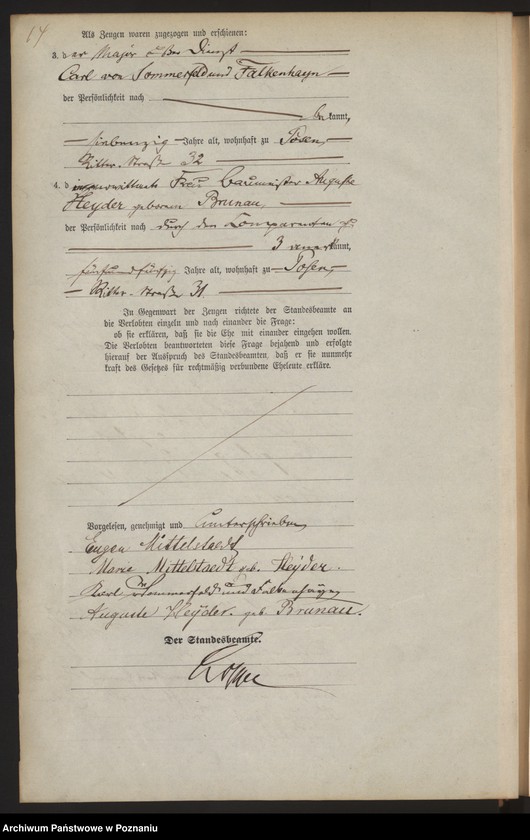 14
Als Zeugen waren zugezogen und erschienen:
3. der Major außer Dienst
Carl von Sommerfeld und Falkenhayn
der Persönlichkeit nach
bekannt,
siebenzig Jahre alt, wohnhaft zu Posen,
Ritter-Straße 32
4. die verwittwete Frau Baumeister Auguste
Heyder geborene Brunau,
der Persönlichkeit nach durch den Comparenten zu
3 anerkannt,
fünfundfünfzig Jahre alt, wohnhaft zu Posen,
Ritter-Straße 31
In Gegenwart der Zeugen richtete der Standesbeamte an
die Verlobten einzeln und nach einander die Frage:
ob sie erklären, daß sie die Ehe mit einander eingehen wollen.
Die Verlobten beantworteten diese Frage bejahend und erfolgte
hierauf der Ausspruch des Standesbeamten, daß er sie nunmehr
kraft des Gesetzes für rechtmäßig verbundene Eheleute erkläre.
Vorgelesen, genehmigt und unterschrieben
Eugen Mittelstaedt
Marie Mittelstaedt geb. Heyder.
Karl v. Sommerfeld und Falkenhayn
Auguste Heyder geb. Brunau.
Der Standesbeamte.
Archiwum Państwowe w Poznaniu